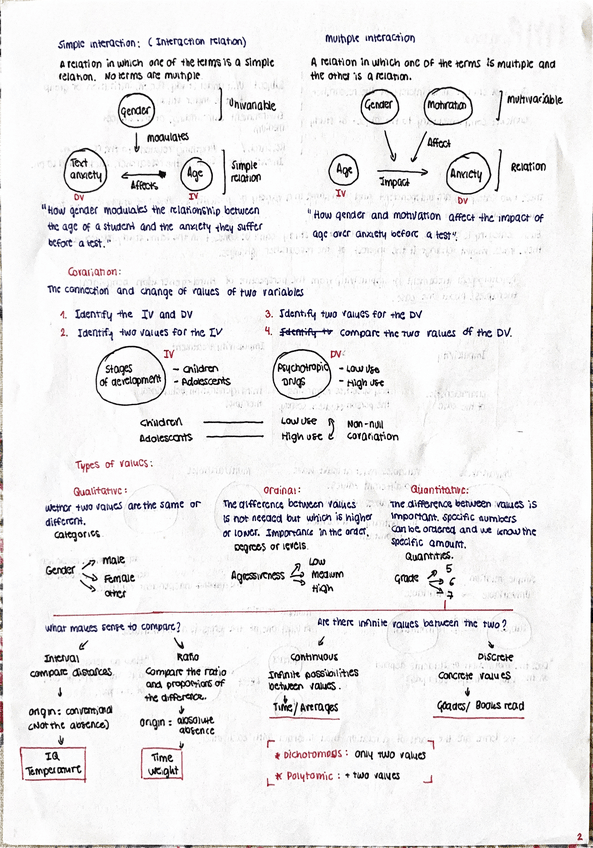 Simple interaction: (Interaction relation)
A relation in which one of the terms is a simple
relation. No terms are multiple
Gender
Univariable
modulates
Text
anxiety
DV
Affects
Age
IV
Simple
relation
"How gender modulates the relationship between
the age of a student and the anxiety they suffer
before a test."
Multiple interaction
A relation in which one of the terms is multiple and
the other is a relation.
Gender
Motivation
Multivariable
Affect
Age
IV
Impact
Anxiety
DV
Relation
"How gender and motivation affect the impact of
age over anxiety before a test".
Covariation:
The connection and change of values of two variables
1. Identify the IV and DV
2. Identify two values for the IV
3. Identify two values for the DV
4. Identify tw compare the two values of the DV.
IV
Stages
of development
- Children
- Adolescents
DV:
Psychotropic
drugs
- Low use
- High use
Children
Low use
Adolescents
High use
Non-null
covariation
Types of values:
Qualitative:
Wether two values are the same or
different.
Categories
Gender
Male
Female
Other
Ordinal:
The difference between values
is not needed but which is higher
or lower. Importance in the order,
Degrees or levels.
Agressiveness
Low
Medium
High
Quantitative:
The difference between values is
important, specific numbers
can be ordered and we know the
specific amount.
Quantities.
Grade
5
6
7
What makes sense to compare?
Interval
compare distances
origin: conventional
(Not the absence)
IQ
Temperature
Ratio
Compare the ratio
and proportions of
the difference.
origin: absolute
absence
Time
Weight
Are there infinite values between the two?
Continuous
Infinite possibilities
between values.
Time/Averages
Discrete
Concrete values
Grades/ Books read
* Dichotomous: only two values
* Polytomic: + two values
2